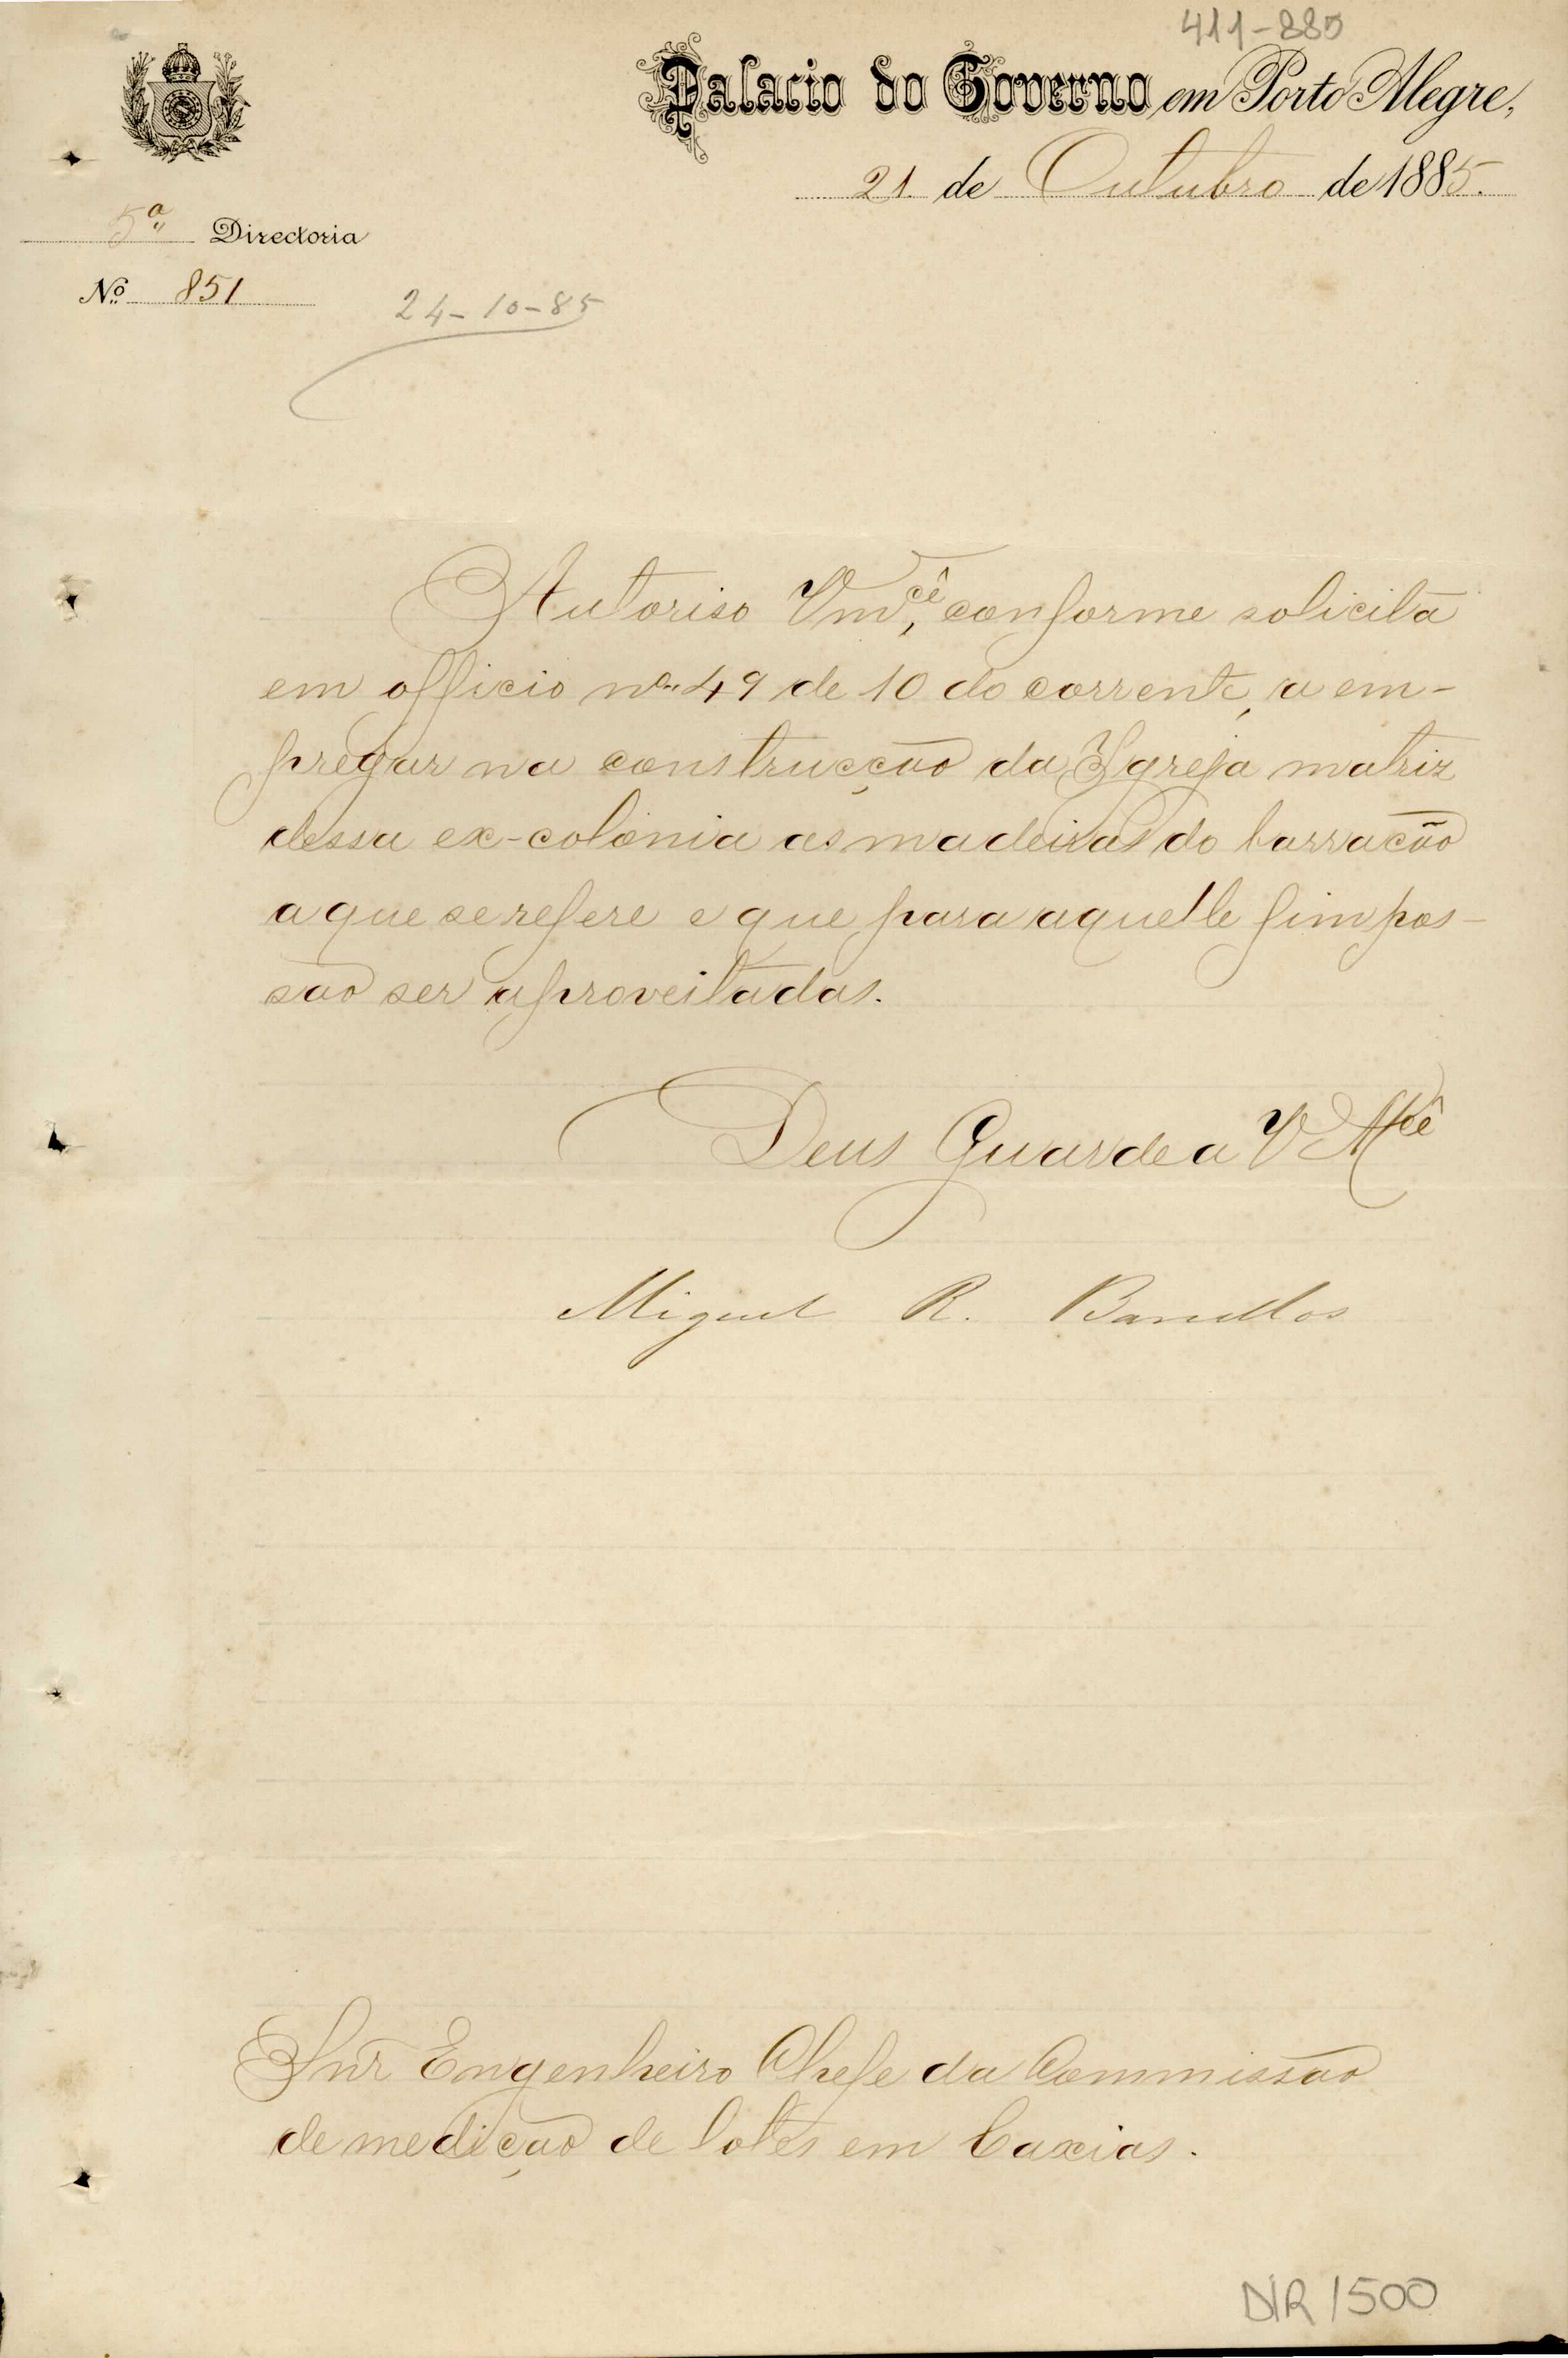 411-885
Palacio do Governo em Porto Alegre,
21 de Outubro de 1885.
5ª Directoria
Nº 851
24-10-85
Autoriso Vmcê, conforme solicita
em officio nº 49 de 10 do corrente, a em-
pregar na construcção da Igreja matriz
dessa ex-colonia as madeiras do barracão
a que se refere e que para aquelle fim pos-
são ser aproveitadas.
Deus Guarde a V Mcê
Miguel R. Barcellos
Snr Engenheiro Chefe da Commissão
de medição de lotes em Caxias.
DIR 1500